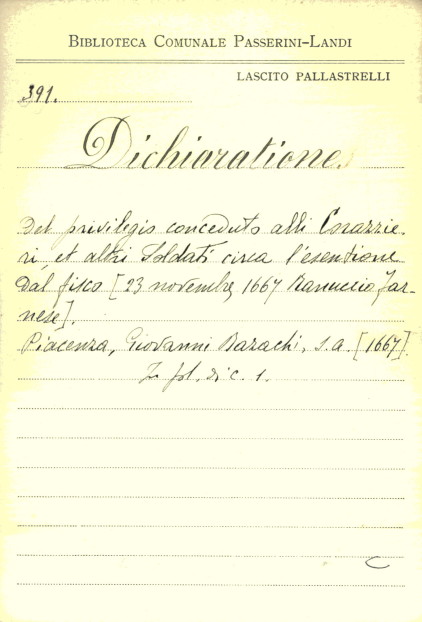 BIBLIOTECA COMUNALE PASSERINI-LANDI
LASCITO PALLASTRELLI
391.
Dichiaratione
Del privilegio conceduto alli Corazzie-
ri et altri Soldati circa l'esentione
dal fisco [23 novembre 1667 Ranuccio Far-
nese].
Piacenza, Giovanni Bazachi, s.a. [1667].
In fol. di c. 1.